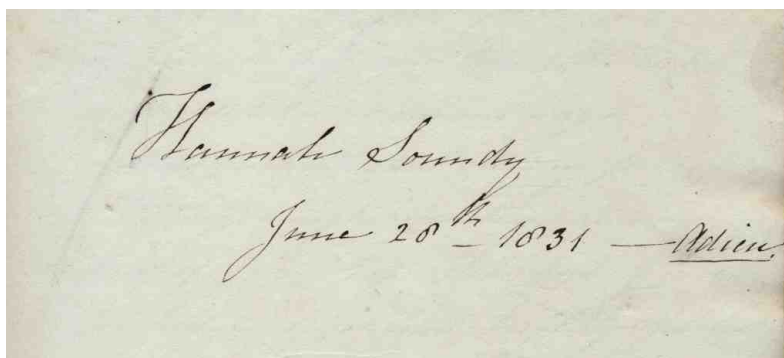 Hannah Soundy
June 28th 1831 — Adieu.